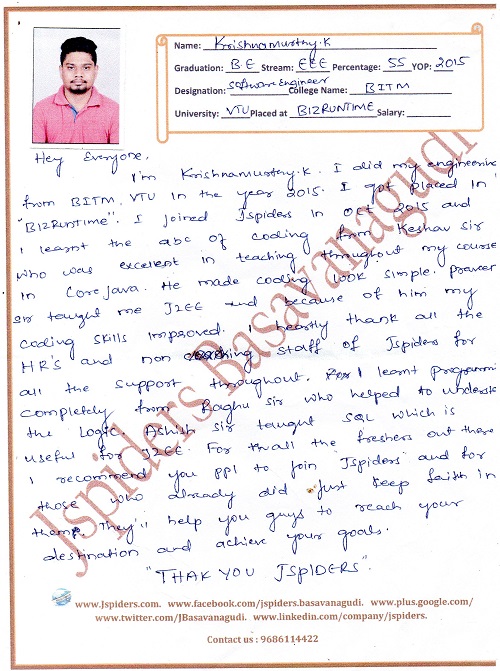 Name: Krishnamurthy.K
Graduation: BE Stream: EEE Percentage: 55 YOP: 2015
Designation: Software Engineer College Name: BITM
University: VTU Placed at BIZRUNTIME Salary:
Hey Everyone,
I'm Krishnamurthy.K. I did my engineering
from BITM, VTU in the year 2015. I got placed in
"BIZRUNTIME". I joined Jspiders in oct 2015 and
I learnt the abc of coding from Keshav sir
who was excellent in teaching throughout my course
in Core Java. He made coding look simple. Praveen
sir taught me J2EE and because of him my
coding skills improved. I heartly thank all the
HR's and non teaching staff of Jspiders for
all the support throughout. I learnt programmi
completely from Raghu sir who helped to underst
the logic. Ashish sir taught SQL which is
useful for J2EE. For all the freshers out there
I recommend you ppl to join Jspiders and for
those who already did just keep faith in
them. They'll help you guys to reach your
destination and achieve your goals.
"THAK YOU JSPIDERS".
Jspiders Basavanagudi
www.Jspiders.com. www.facebook.com/jspiders.basavanagudi. www.plus.google.com/
www.twitter.com/JBasavanagudi. www.linkedin.com/company/jspiders.
Contact us : 9686114422